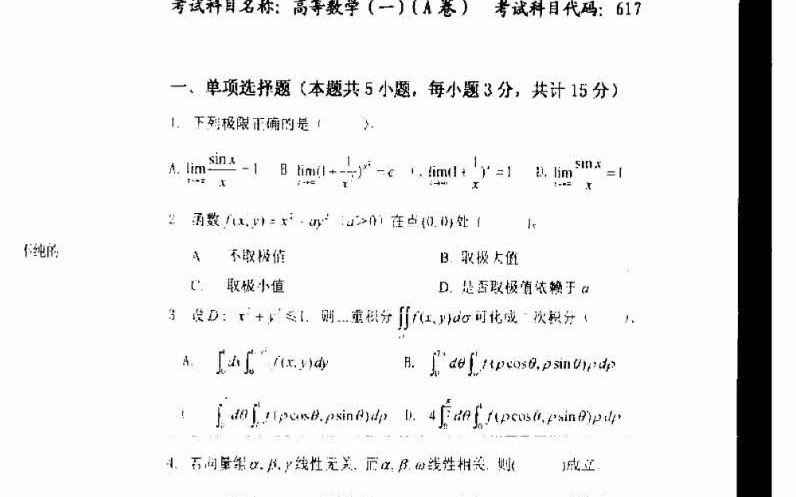 考试科目名称：高等数学（一）（A卷） 考试科目代码：617
一、单项选择题（本题共5小题，每小题3分，共计15分）
1. 下列极限正确的是（ ）.
A. lim sin x / x = 1 B lim(1+1/x²)^x² = e lim(1+1/x)^x = 1 D. lim sin x / x = 1
2 函数 f(x,y) = x² - ay² (a>0) 在点(0,0)处（ ）.
不纯的
A 不取极值 B. 取极大值
C. 取极小值 D. 是否取极值依赖于 a
3 设 D: x² + y² ≤ 1. 则二重积分 ∬f(x,y)dσ 可化成二次积分（ ）.
A. ∫dx∫ f(x,y)dy B. ∫dθ∫ f(ρcosθ,ρsinθ)ρdρ
∫dθ∫ f(ρcosθ,ρsinθ)dρ D. 4∫dθ∫ f(ρcosθ,ρsinθ)ρdρ
4. 若向量组 α,β,γ 线性无关, 而 α,β,ω 线性相关, 则( )成立.